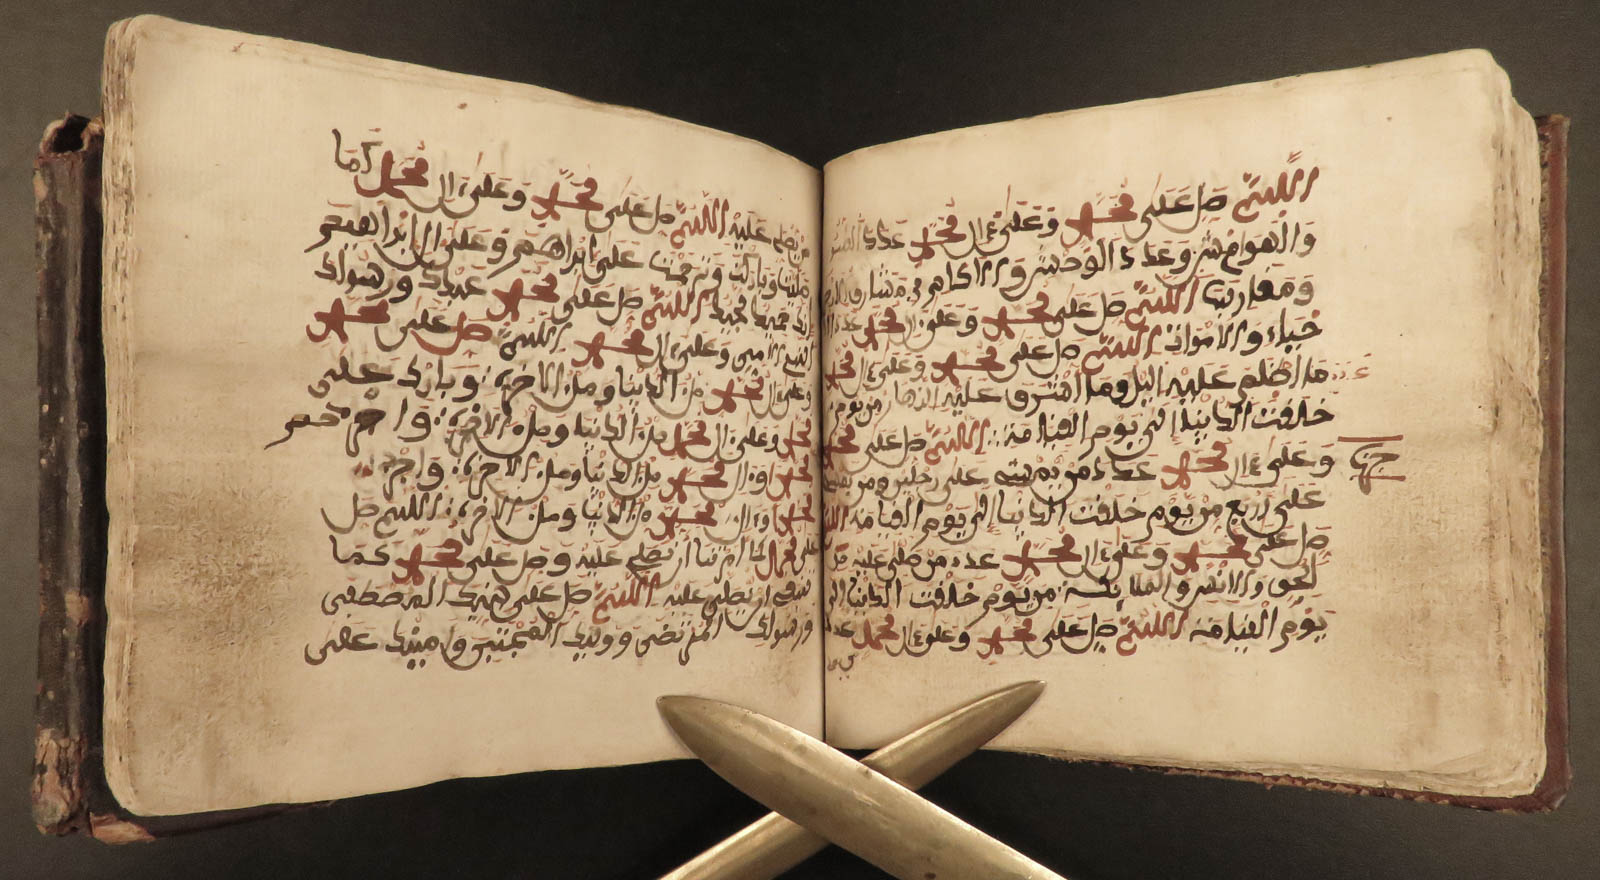 اللهم صل على محمد وعلى ءال محمد عدد
والهوام وعدد الوحش والاكام في مشارق الارض
ومغاربها اللهم صل على محمد وعلى ءال محمد عدد الا
حياء والاموات اللهم صل على محمد وعلى ءال محمد
عدد ما اظلم عليه اليل وما اشرق عليه النهار من يوم
خلقت الدنيا الى يوم القيامة اللهم صل على محمد
وعلى ءال محمد عدد من يمشي على رجلين ومن يمشي
حزب
على اربع من يوم خلقت الدنيا الى يوم القيامة اللهم
صل على محمد وعلى ءال محمد عدد من صلى عليه من
الجن والانس والملائكة من يوم خلقت الدنيا الى
يوم القيامة اللهم صل على محمد وعلى ءال محمد عدد
من
من يصلي عليه اللهم صل على محمد وعلى ءال محمد كما
صليت وباركت وترحمت على ابراهيم وعلى ءال ابراهيم
انك حميد مجيد اللهم صل على محمد عبدك ورسولك
النبي الامي وعلى ءال محمد اللهم صل على محمد
وعلى ءال محمد ملء الدنيا وملء الاخرة وبارك على
محمد وعلى ءال محمد ملء الدنيا وملء الاخرة وارحم
محمدا وءال محمد ملء الدنيا وملء الاخرة واجز
محمدا وءال محمد ملء الدنيا وملء الاخرة اللهم صل
على محمد كما امرتنا ان نصلي عليه وصل على محمد كما
ينبغي ان يصلى عليه اللهم صل على نبيك المصطفى
ورسولك المرتضى ووليك المجتبى وامينك على